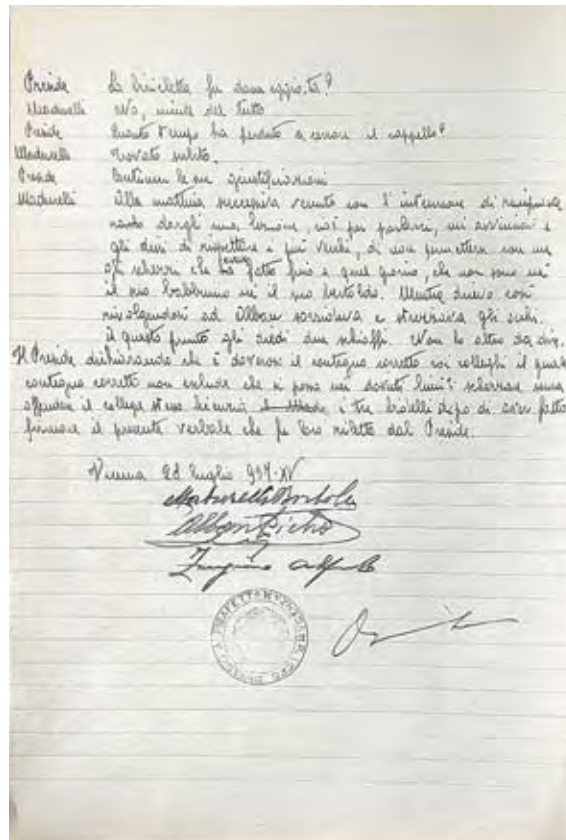 Preside La bicicletta fu danneggiata?
Maturelli No, niente del tutto
Preside Quanto tempo ha perduto a cercare il cappello?
Maturelli Trovato subito.
Preside Continui le sue giustificazioni
Maturelli Alla mattina successiva venuto con l'intenzione di
dargli una lezione, così per parlare, mi avvicinai e
gli dissi di rispettare i più vecchi, di non permettersi con me
gli scherzi che aveva fatto fino a quel giorno, che non sono nè
il suo babbuino nè il suo bertoldo. Mentre dicevo così
rivolgendomi ad Alban sorrideva e stralunava gli occhi.
A questo punto gli diedi due schiaffi. Non ho altro da dire.
Il Preside dichiarando che è doveroso il contegno corretto coi colleghi il quale
contegno corretto non esclude che si possa nei dovuti limiti scherzare senza
offendere il collega stesso licenzia i tre bidelli dopo di aver fatto
firmare il presente verbale che fu loro riletto dal Preside.
luglio 937-XV
Bortolo
Alban Pietro